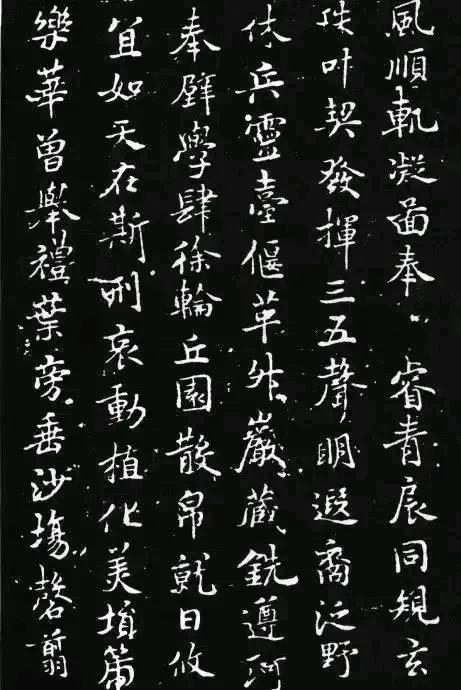 風順軌凝啚奉 睿青扆同規玄
叶契發揮三五聲明遐裔泛野
休兵靈臺偃革升巖藏銑遵河
奉璧學肆徐輪丘園散帛就日攸
宜如天在斯刑哀動植化美塤篪
樂華曾舉禮葉旁垂沙場罄翦